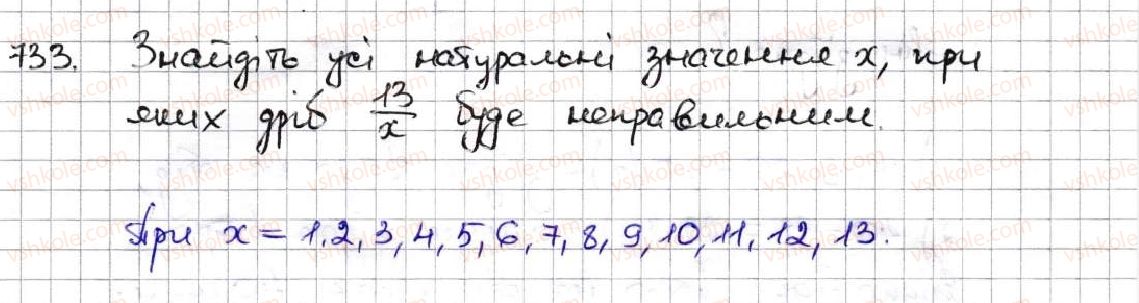 733. Знайдіть усі натуральні значення x, при
яких дріб 13/x буде неправильним.
При x = 1,2, 3, 4, 5, 6, 7, 8, 9, 10, 11, 12, 13.